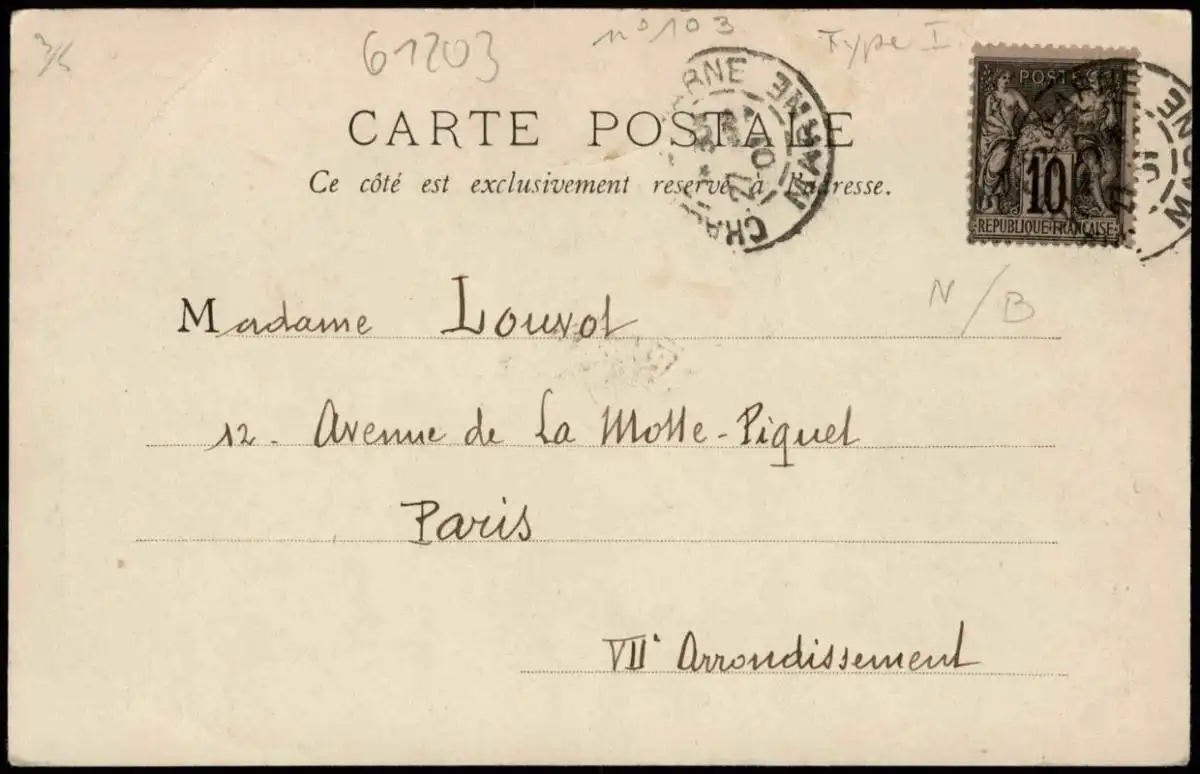 61203
n° 103
Type I
CARTE POSTALE
Ce côté est exclusivement reservé à l'adresse.
MARNE
POSTES
10
REPUBLIQUE FRANÇAISE
N/B
Madame Louvot
12 - Avenue de La Motte-Piquet
Paris
VIIe Arrondissement